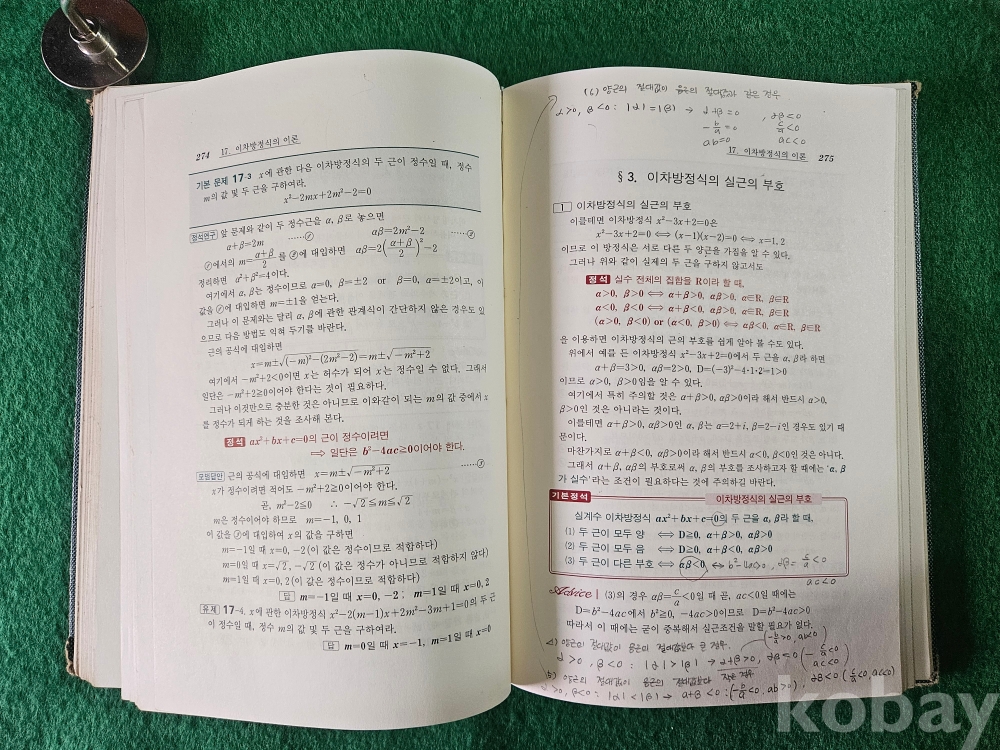 274 17. 이차방정식의 이론
기본 문제 17-3 x에 관한 다음 이차방정식의 두 근이 정수일 때, 정수
m의 값 및 두 근을 구하여라.
x²-2mx+2m²-2=0
정석연구 앞 문제와 같이 두 정수근을 α, β로 놓으면
α+β=2m ……① αβ=2m²-2 ……②
①에서의 m=(α+β)/2 를 ②에 대입하면 αβ=2((α+β)/2)²-2
정리하면 α²+β²=4이다.
여기에서 α, β는 정수이므로 α=0, β=±2 or β=0, α=±2이고, 이
값을 ①에 대입하면 m=±1을 얻는다.
그러나 이 문제와는 달리 α, β에 관한 관계식이 간단하지 않은 경우도 있
으므로 다음 방법도 익혀 두기를 바란다.
근의 공식에 대입하면
x=m±√(-m)²-(2m²-2)=m±√-m²+2
여기에서 -m²+2<0이면 x는 허수가 되어 x는 정수일 수 없다. 그래서
일단은 -m²+2≧0이어야 한다는 것이 필요하다.
그러나 이것만으로 충분한 것은 아니므로 이와같이 되는 m의 값 중에서 x
를 정수가 되게 하는 것을 조사해 본다.
정석 ax²+bx+c=0의 근이 정수이려면
⟹ 일단은 b²-4ac≧0이어야 한다.
모범답안 근의 공식에 대입하면 x=m±√-m²+2 ……①
x가 정수이려면 적어도 -m²+2≧0이어야 한다.
곧, m²-2≦0 ∴ -√2≦m≦√2
m은 정수이어야 하므로 m=-1, 0, 1
이 값을 ①에 대입하여 x의 값을 구하면
m=-1일 때 x=0, -2 (이 값은 정수이므로 적합하다)
m=0일 때 x=√2, -√2 (이 값은 정수가 아니므로 적합하지 않다)
m=1일 때 x=0, 2 (이 값은 정수이므로 적합하다)
답 m=-1일 때 x=0, -2; m=1일 때 x=0, 2
유제 17-4. x에 관한 이차방정식 x²-2(m-1)x+2m²-3m+1=0의 두 근
이 정수일 때, 정수 m의 값 및 두 근을 구하여라.
답 m=0일 때 x=-1, m=1일 때 x=0
(6) 양근의 절대값이 음근의 절대값과 같은 경우
α>0, β<0 : |α|=|β| → α+β=0, αβ<0
-b/a=0 c/a<0
ab=0 ac<0
17. 이차방정식의 이론 275
§3. 이차방정식의 실근의 부호
1 이차방정식의 실근의 부호
이를테면 이차방정식 x²-3x+2=0은
x²-3x+2=0 ⟺ (x-1)(x-2)=0 ⟺ x=1, 2
이므로 이 방정식은 서로 다른 두 양근을 가짐을 알 수 있다.
그러나 위와 같이 실제의 두 근을 구하지 않고서도
정석 실수 전체의 집합을 R이라 할 때,
α>0, β>0 ⟺ α+β>0, αβ>0, α∈R, β∈R
α<0, β<0 ⟺ α+β<0, αβ>0, α∈R, β∈R
(α>0, β<0) or (α<0, β>0) ⟺ αβ<0, α∈R, β∈R
을 이용하면 이차방정식의 근의 부호를 쉽게 알아 볼 수도 있다.
위에서 예를 든 이차방정식 x²-3x+2=0에서 두 근을 α, β라 하면
α+β=3>0, αβ=2>0, D=(-3)²-4·1·2=1>0
이므로 α>0, β>0임을 알 수 있다.
여기에서 특히 주의할 것은 α+β>0, αβ>0이라 해서 반드시 α>0,
β>0인 것은 아니라는 것이다.
이를테면 α+β>0, αβ>0인 α, β는 α=2+i, β=2-i인 경우도 있기 때
문이다.
마찬가지로 α+β<0, αβ>0이라 해서 반드시 α<0, β<0인 것은 아니다.
그래서 α+β, αβ의 부호로써 α, β의 부호를 조사하고자 할 때에는 'α, β
가 실수'라는 조건이 필요하다는 것에 주의하길 바란다.
기본정석 이차방정식의 실근의 부호
실계수 이차방정식 ax²+bx+c=0의 두 근을 α, β라 할 때,
(1) 두 근이 모두 양 ⟺ D≧0, α+β>0, αβ>0
(2) 두 근이 모두 음 ⟺ D≧0, α+β<0, αβ>0
(3) 두 근이 다른 부호 ⟺ αβ<0 ↔ b²-4ac>0, αβ=c/a<0
ac<0
Advice (3)의 경우 αβ=c/a<0일 때 곧, ac<0일 때에는
D=b²-4ac에서 b²≧0, -4ac>0이므로 D=b²-4ac>0
따라서 이 때에는 굳이 중복해서 실근조건을 말할 필요가 없다.
(4) 양근의 절대값이 음근의 절대값보다 큰 경우. (-b/a>0, ab<0)
α>0, β<0 : |α|>|β| → α+β>0, αβ<0 (c/a<0 ac<0)
(5) 양근의 절대값이 음근의 절대값보다 작은 경우
α>0, β<0 : |α|<|β| → α+β<0 (-b/a<0, ab>0), αβ<0 (c/a<0, ac<0)
kobay